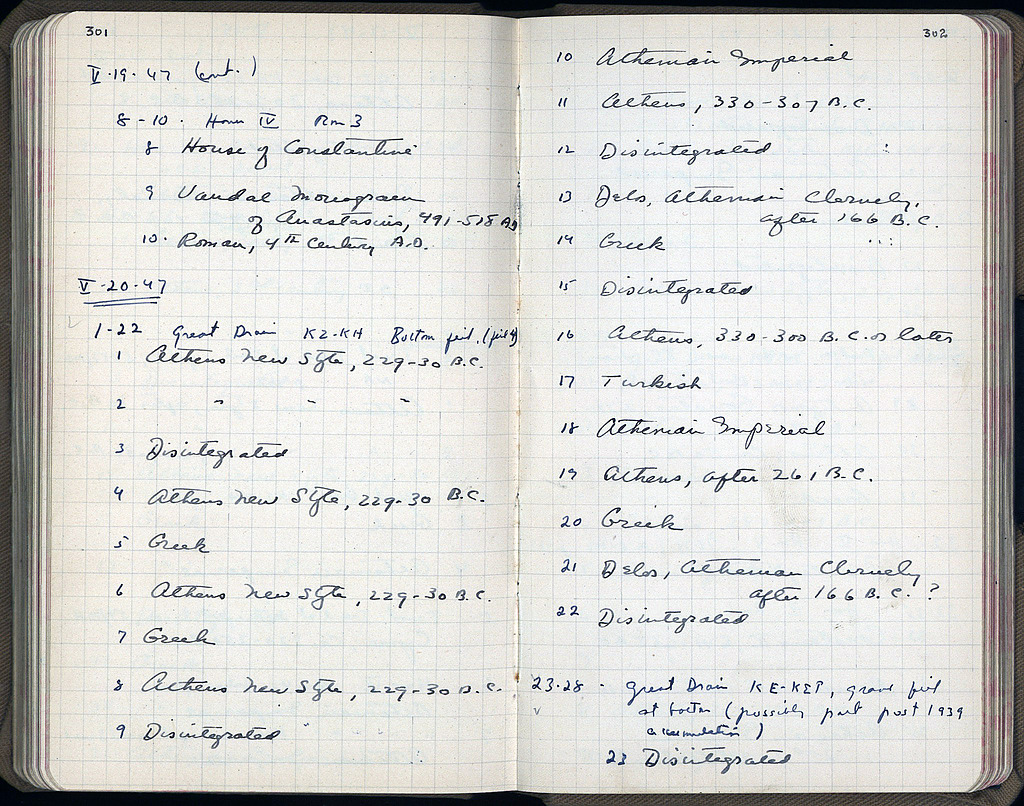 301
V·19·47 (cont.)
8-10. House IV Rm 3
8 House of Constantine
9 Vandal monogram
of Anastasius, 491-518 A.D.
10. Roman, 4th Century A.D.
V·20·47
1-22 Great Drain KZ-KH Bottom fill. (fill 4)
1 Athens New Style, 229-30 B.C.
2 " " "
3 Disintegrated
4 Athens New Style, 229-30 B.C.
5 Greek
6 Athens New Style, 229-30 B.C.
7 Greek
8 Athens New Style, 229-30 B.C.
9 Disintegrated
302
10 Athenian Imperial
11 Athens, 330-307 B.C.
12 Disintegrated
13 Delos, Athenian Cleruchy,
after 166 B.C.
14 Greek
15 Disintegrated
16 Athens, 330-300 B.C. or later
17 Turkish
18 Athenian Imperial
19 Athens, after 261 B.C.
20 Greek
21 Delos, Athenian Cleruchy
after 166 B.C. ?
22 Disintegrated
23-28 · Great Drain KE-KET, gravel fill
at bottom (possibly part post 1939
accumulation)
23 Disintegrated